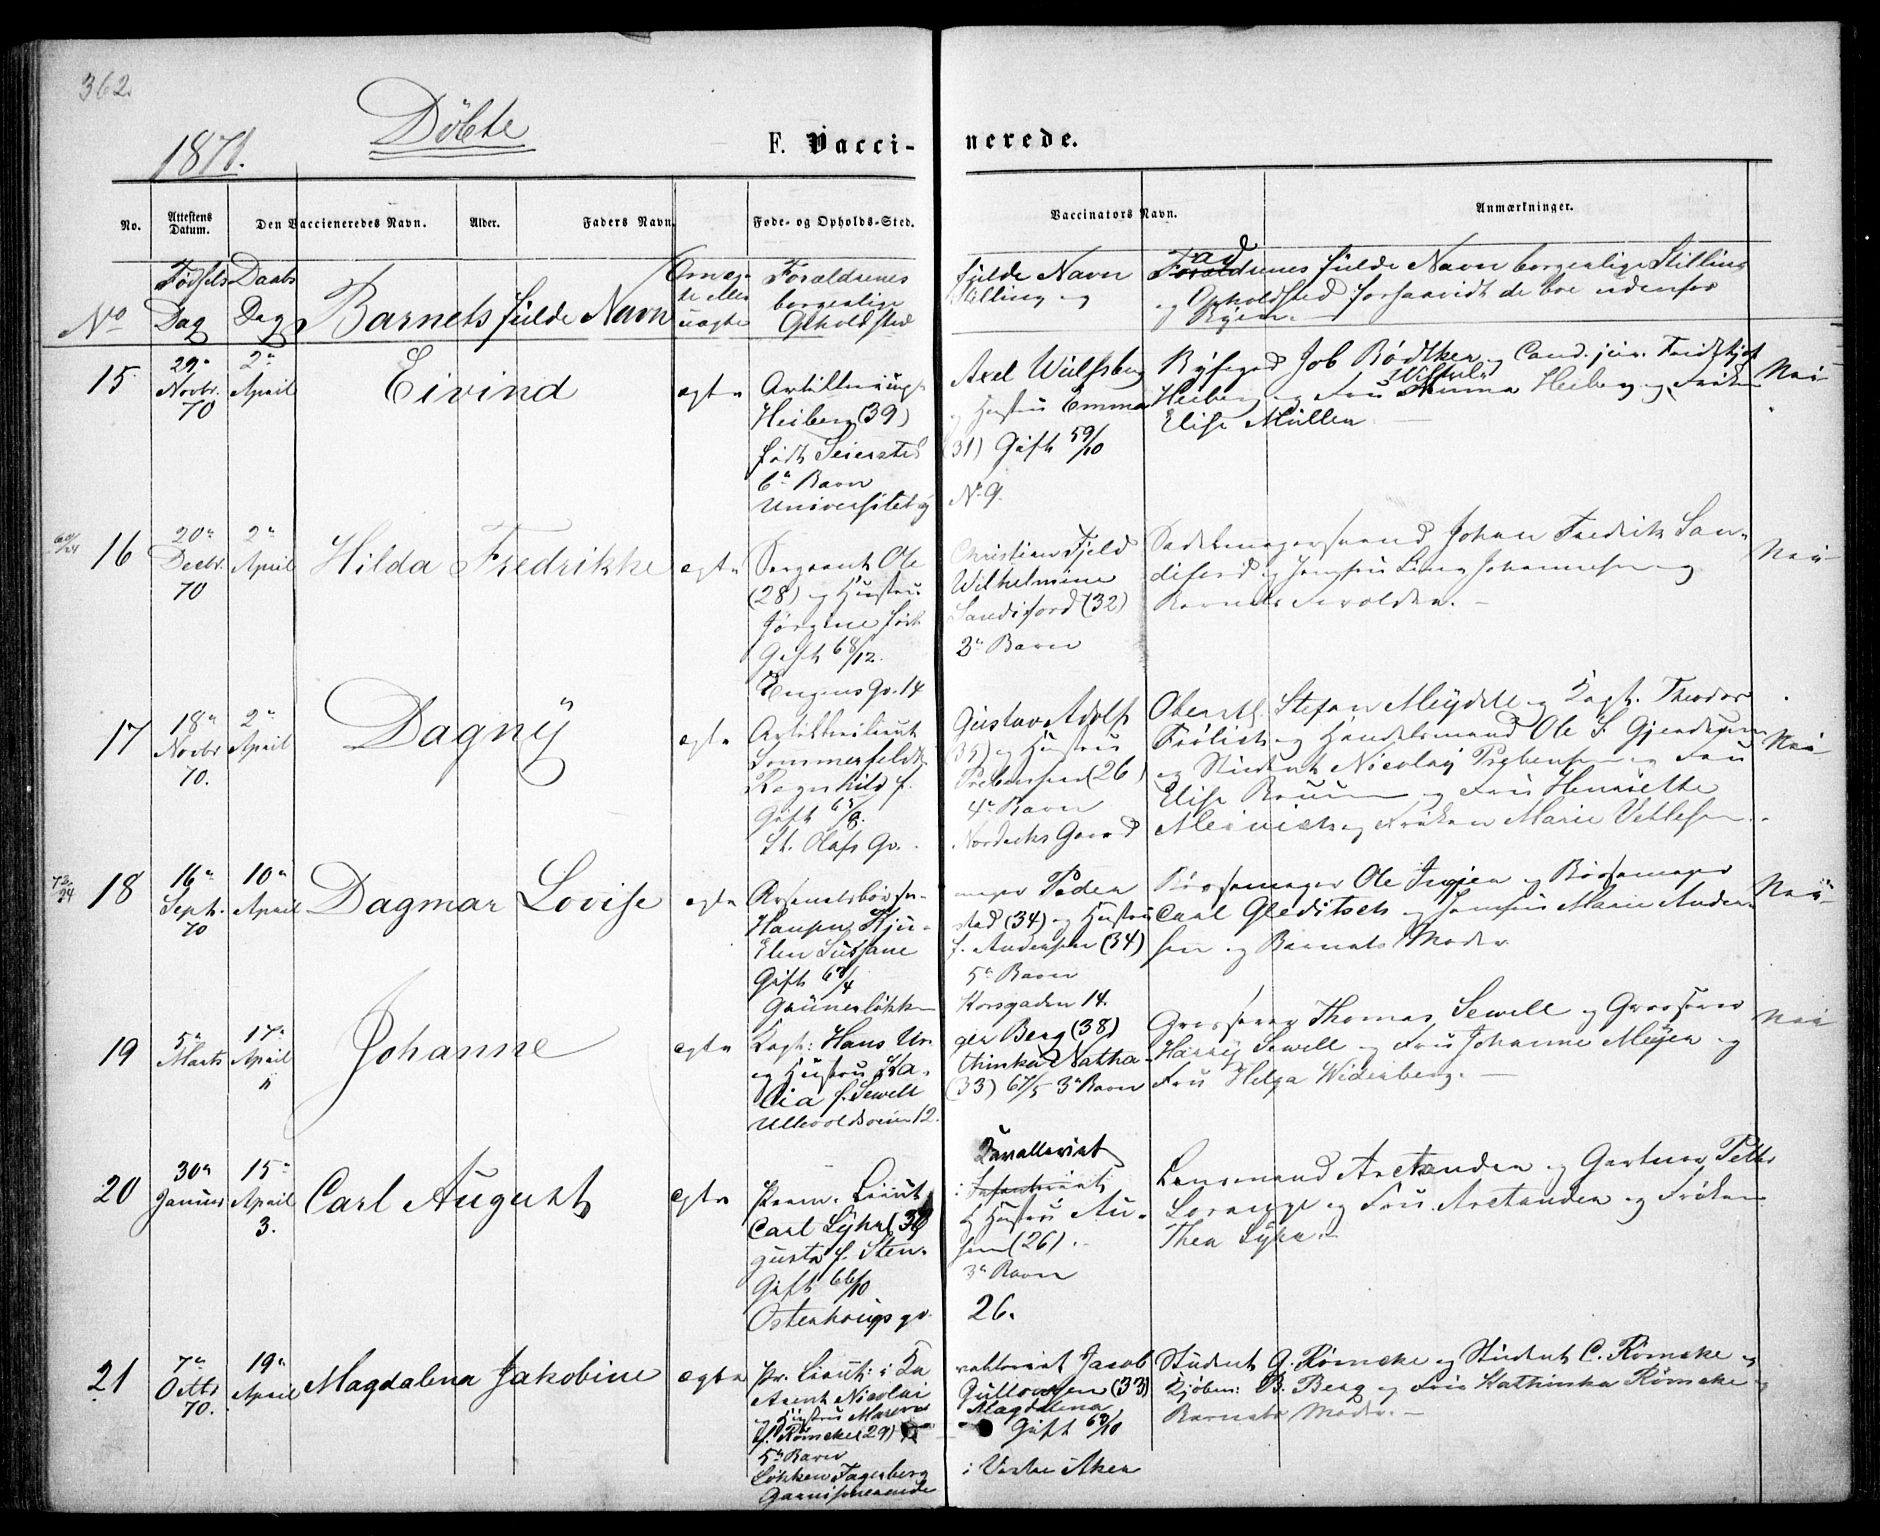 362.
Døbte
1871.
F. Vacci-
nerede.
No.
Attestens Datum.
Den Vaccineredes Navn.
Alder.
Faders Navn.
Føde- og Opholds-Sted.
Vaccinators Navn.
Anmærkninger.
No
Fødsels Dag
Daabs Dag
Barnets fulde Navn
Om æg-
te eller
uægte
Forældrenes
borgerlige
Opholdsted
fulde Navn
Stilling og
Fad
Forældrenes fulde Navn borgerlige Stilling
og Opholdsted forsaavidt de boe udenfor
Byen.
15
29de Novbr. 70
2den April
Eivind
ægte
Heiberg (39)
født Seiersted
6te Barn
Universitetsg
Axel Wulfsberg
og Hustru Emma
(31) Gift 59/10
No 9.
Job Bødtker og Cand. jur. Fridthjof
Heiberg og Fru Heiberg og Frøken
Elise Müller.
Nei
69/24
16
20de Decbr. 70
2den April
Hilda Fredrikke
ægte
Sergeant Ole
(28) og Hustru
Jørgine født
Gift 68/12.
Engens Gd. 14
Christian Fjeld
Wilhelmine
Sandiford (32)
3de Barn
Sadelmagersvend Johan Fredrik San-
diford og Jomfru Johannesen og
Barnets Forældre.
Nei
17
18de Novbr 70.
2den April
Dagny
ægte
Sommerfeldt
Ragnhild f.
Gift 65/8.
St. Olafs Gd.
Gustav Adolf
(35) og Hustru
Prebensen (26)
4de Barn
Oberstl. Stefan Meydell og Capt. Theodor
Frølich og Handelsmand Ole S.
og Student Nicolay Prebensen og Fru
Elise og Fru Henriette
og Frøken Marie Vetlesen.
Nei
73/24
18
16de Septr. 70
10de April
Dagmar Lovise
ægte
Hansen
Elen Susane
Gift 63/4
Grünerløkken
mager Peder
stad (34) og Hustru
f. Andersen (34)
5te Barn
Korsgaden 14.
Børsemager Ole og Børsemager
Carl Gleditsch og Jomfru Marie Ander-
sen og Barnets Moder
Nei
19
5te Marts
17de April
Johanne
ægte
Capt: Hans Un-
og Hustru Ka-
cia f. Sewell
Ullevoldsveien 12.
ger Berg (38)
thinka Natha-
(33) 67/5 3de Barn
Grosserer Thomas Sewell og Grosserer
Harry Sewell og Fru Johanne Meyer og
Fru Helga Widerberg.
Nei
20
30de Januar
15de April
3.
Carl August
ægte
Prem. Lieut
Carl Lyke
gusta f. Sten-
Gift 66/10
Osterhougs gd.
Kavalleriet
i Infanteriet
og Hustru Au-
sen (26).
3de Barn
26.
Lensmand Arctander og Gartner Peter
Lorange og Fru Arctander og Frøken
Thea Lyke.
21
7de Octbr 70.
19de April
Magdalena Jakobine
ægte
Pr. Lieut: i Ka
Arent Nicolai
og Hustru Maren
f. Rømcke (29)
5te Barn
Løkken Fagerberg
Garnisonerende
valleriet Jacob
Gulloysen (33)
Magdalena
Gift 63/10
i Vestre Aker
Student G. Rømcke og Student C. Rømcke og
Kjøbm: B. Berg og Fru Kathinka Rømcke og
Barnets Moder.